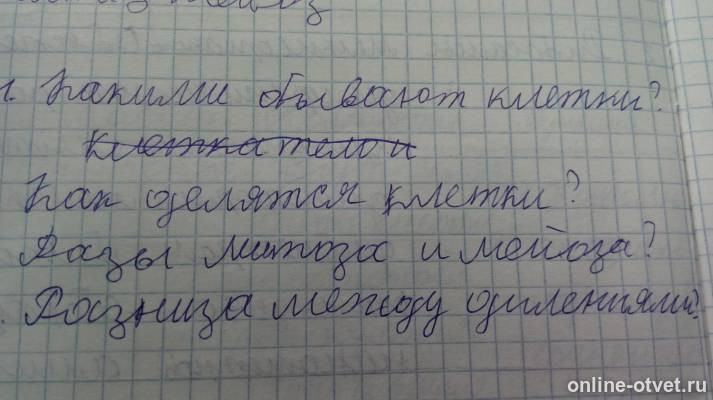 мейоз
1. Какими бывают клетки?
клетка тело и
Как делятся клетки?
Фазы митоза и мейоза?
Разница между дилениями?
online-otvet.ru